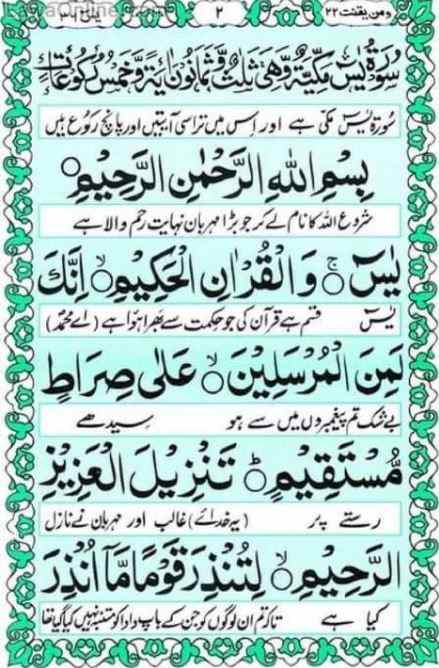 ومن يقنت ٢٢ ٢ يٰسٓ ٣٦
سُوْرَةُ يٰسٓ مَكِّيَّةٌ وَّهِيَ ثَلٰثٌ وَّثَمَانُوْنَ اٰيَةً وَّخَمْسُ رُكُوْعَاتٍ
سُورۃ یٰسٓ مکی ہے اور اس میں تراسی آیتیں اور پانچ رکوع ہیں
بِسْمِ اللّٰهِ الرَّحْمٰنِ الرَّحِيْمِ ○
شروع اللہ کا نام لے کر جو بڑا مہربان نہایت رحم والا ہے
يٰسٓ ○ وَالْقُرْاٰنِ الْحَكِيْمِ ○ اِنَّكَ
یٰسٓ قسم ہے قرآن کی جو حکمت سے بھرا ہوا ہے (اے محمدؐ)
لَمِنَ الْمُرْسَلِيْنَ ○ عَلٰى صِرَاطٍ
بے شک تم پیغمبروں میں سے ہو سیدھے
مُّسْتَقِيْمٍ ○ تَنْزِيْلَ الْعَزِيْزِ
رستے پر (یہ خدائے) غالب اور مہربان نے نازل
الرَّحِيْمِ ○ لِتُنْذِرَ قَوْمًا مَّآ اُنْذِرَ
کیا ہے تاکہ تم ان لوگوں کو جن کے باپ دادا کو متنبہ نہیں کیا گیا تھا